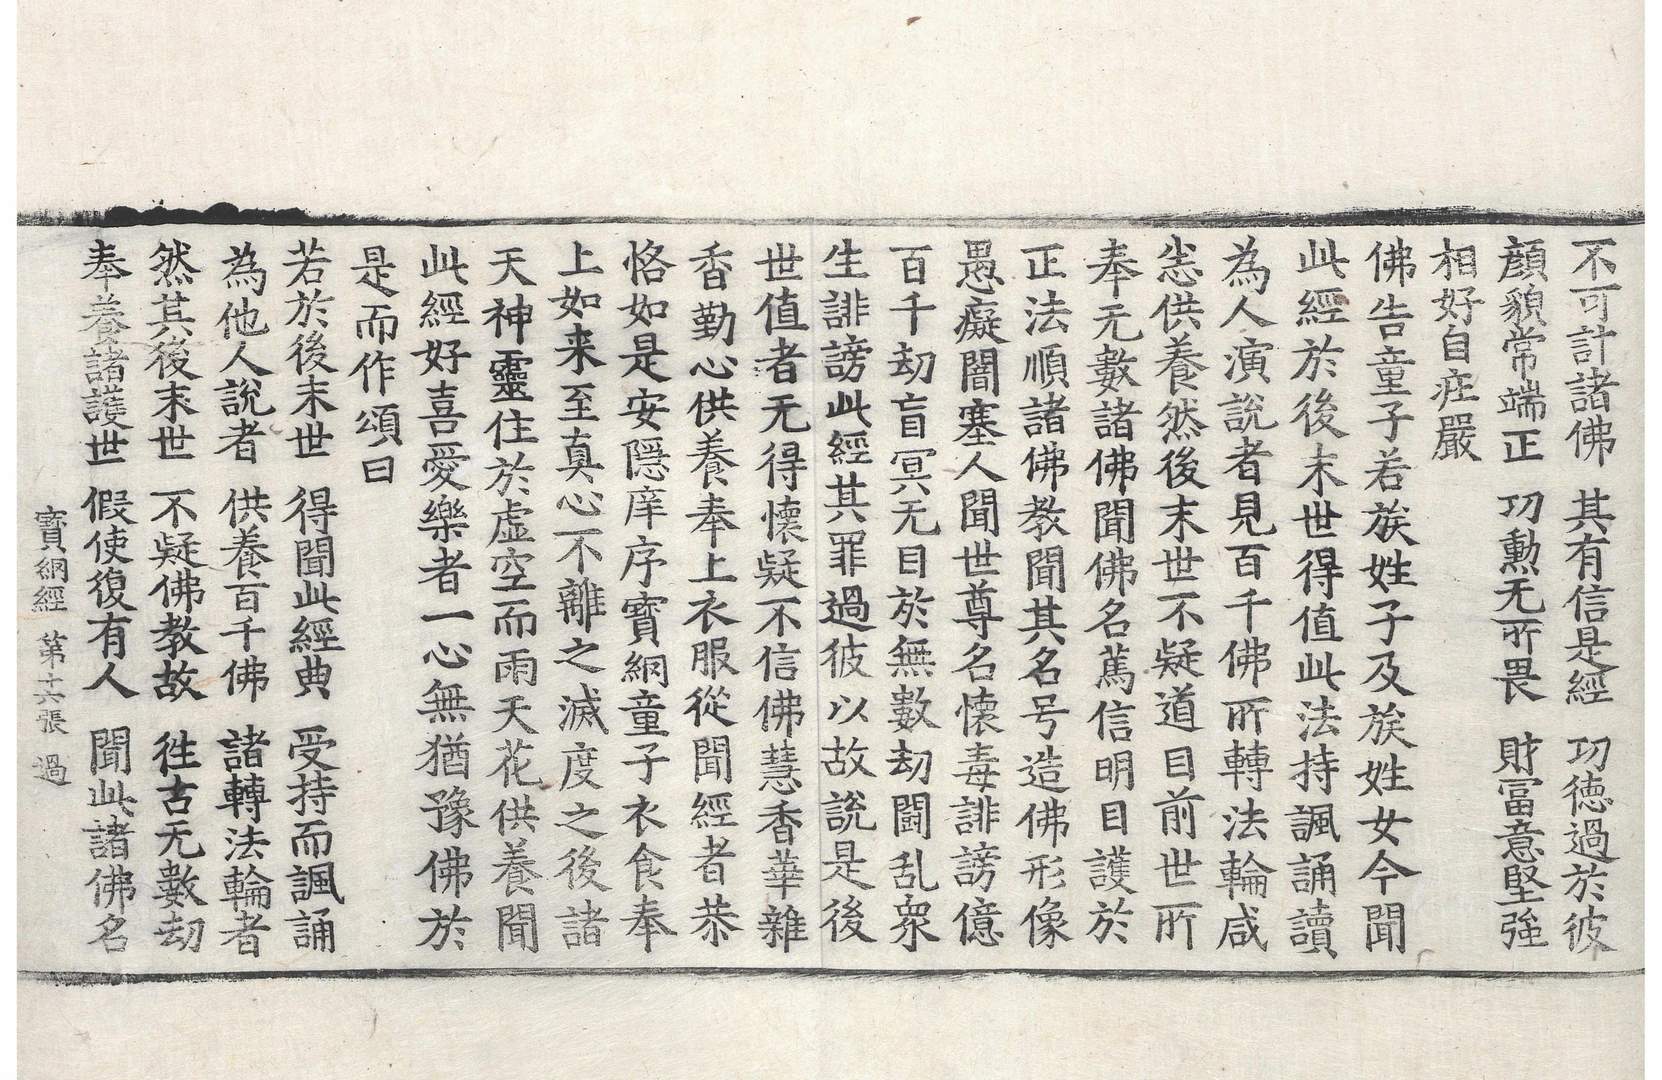 不可計諸佛　其有信是經　功德過於彼
顔貌常端正　功勲无所畏　財富意堅強
相好自庄嚴
佛告童子若族姓子及族姓女今聞
此經於後末世得值此法持諷誦讀
為人演說者見百千佛所轉法輪咸
悉供養然後末世不疑道目前世所
奉无數諸佛聞佛名篤信明目護於
正法順諸佛教聞其名号造佛形像
愚癡闇塞人聞世尊名懷毒誹謗億
百千劫盲冥无目於無數劫鬪乱衆
生誹謗此經其罪過彼以故說是後
世值者无得懷疑不信佛慧香華雜
香勤心供養奉上衣服從聞經者恭
恪如是安隱庠序寶網童子衣食奉
上如来至真心不離之滅度之後諸
天神靈住於虛空而雨天花供養聞
此經好喜愛樂者一心無猶豫佛於
是而作頌曰
若於後末世　得聞此經典　受持而諷誦
為他人說者　供養百千佛　諸轉法輪者
然其後末世　不疑佛教故　往古无數劫
奉養諸護世　假使復有人　聞此諸佛名
寶網經　第十六張　過